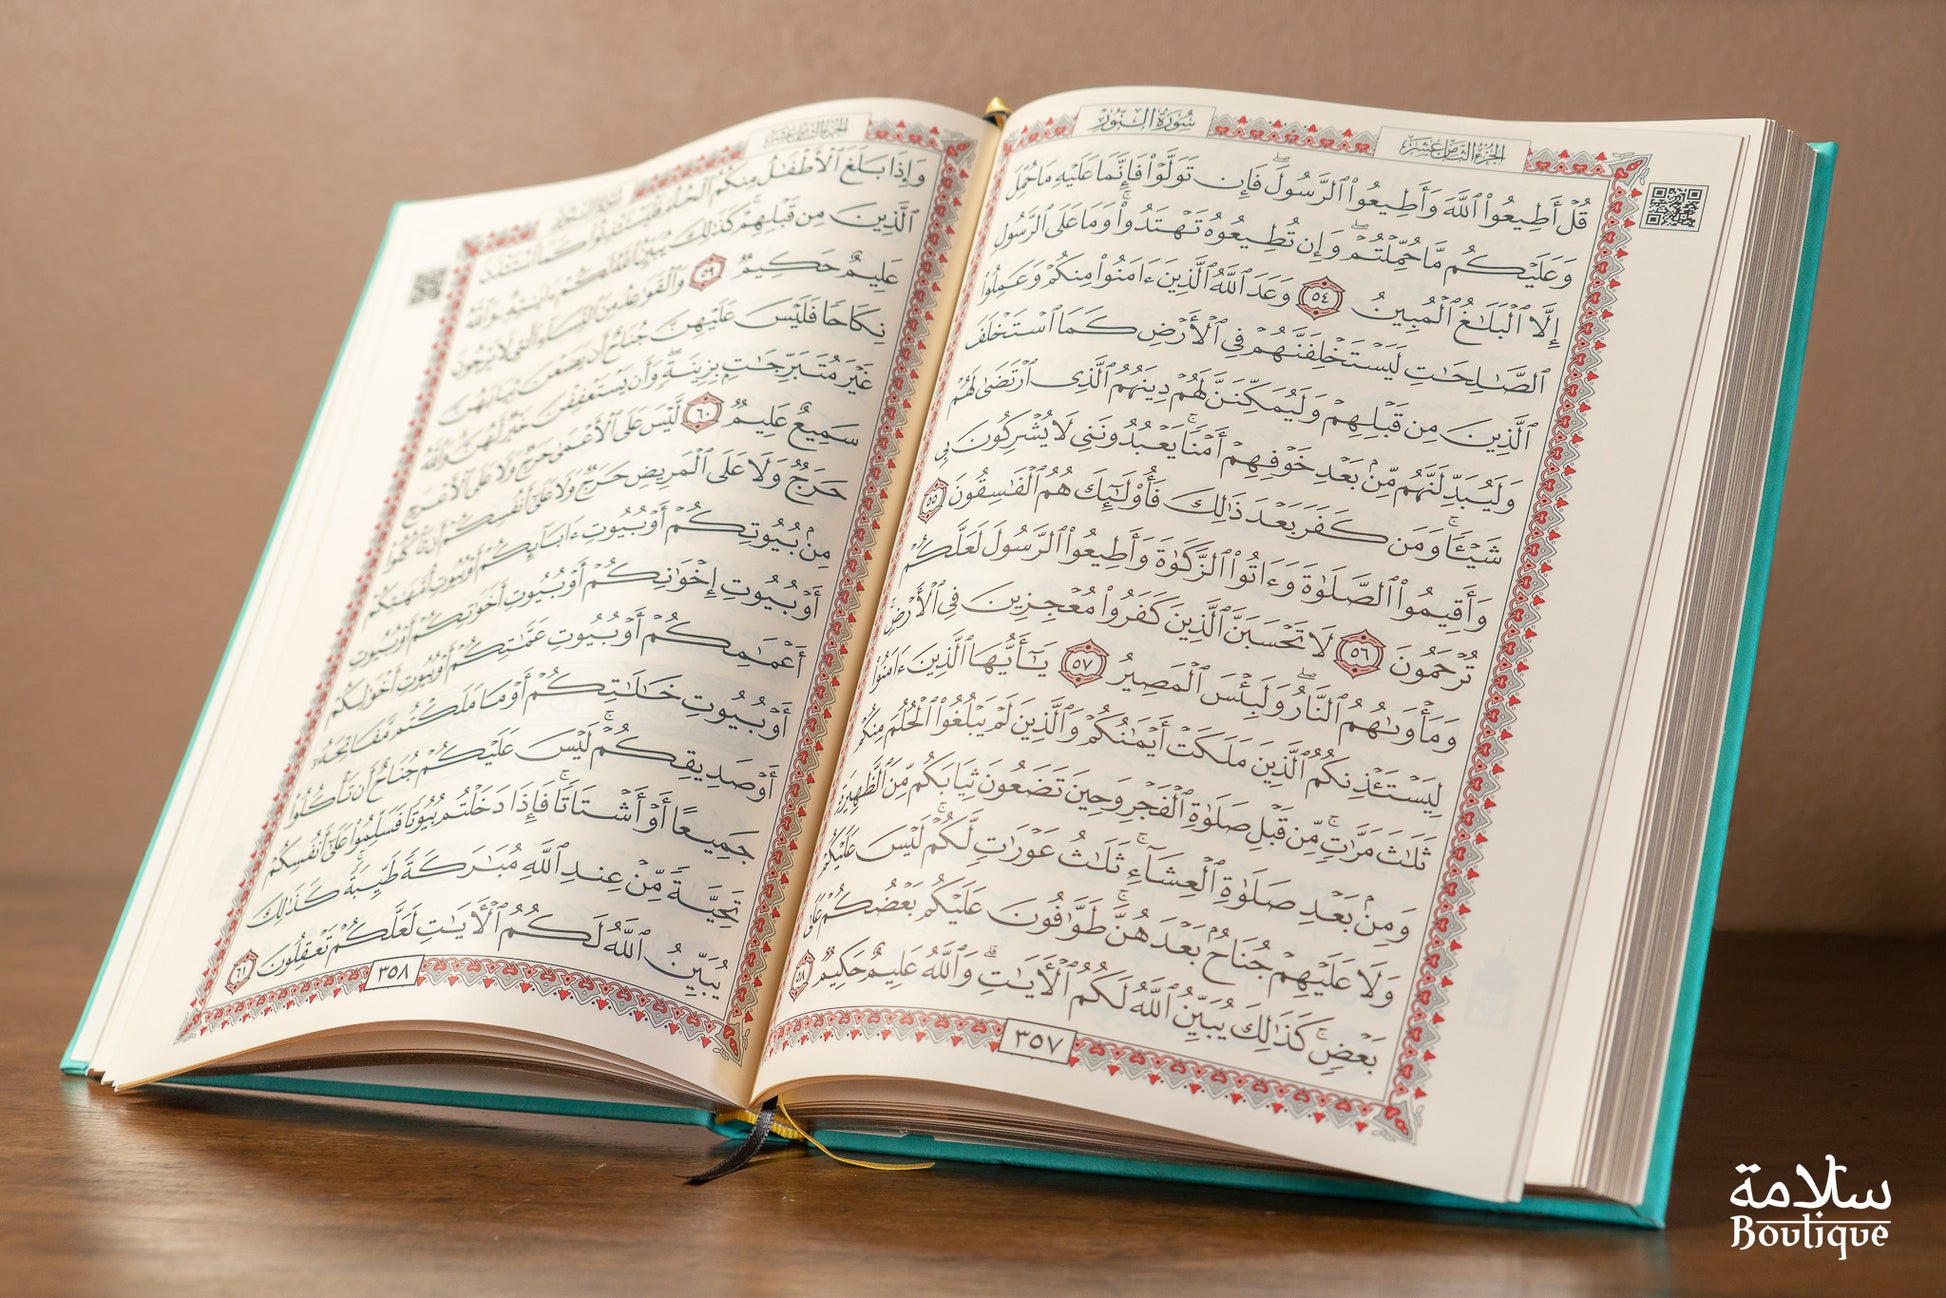 سُورَةُ النُّورِ
الجُزْءُ الثَّامِنَ عَشَرَ
قُلْ أَطِيعُوا۟ ٱللَّهَ وَأَطِيعُوا۟ ٱلرَّسُولَ ۖ فَإِن تَوَلَّوْا۟ فَإِنَّمَا عَلَيْهِ مَا حُمِّلَ
وَعَلَيْكُم مَّا حُمِّلْتُمْ ۖ وَإِن تُطِيعُوهُ تَهْتَدُوا۟ ۚ وَمَا عَلَى ٱلرَّسُولِ
إِلَّا ٱلْبَلَٰغُ ٱلْمُبِينُ ٥٤ وَعَدَ ٱللَّهُ ٱلَّذِينَ ءَامَنُوا۟ مِنكُمْ وَعَمِلُوا۟
ٱلصَّٰلِحَٰتِ لَيَسْتَخْلِفَنَّهُمْ فِى ٱلْأَرْضِ كَمَا ٱسْتَخْلَفَ
ٱلَّذِينَ مِن قَبْلِهِمْ وَلَيُمَكِّنَنَّ لَهُمْ دِينَهُمُ ٱلَّذِى ٱرْتَضَىٰ لَهُمْ
وَلَيُبَدِّلَنَّهُم مِّنۢ بَعْدِ خَوْفِهِمْ أَمْنًا ۚ يَعْبُدُونَنِى لَا يُشْرِكُونَ بِى
شَيْـًٔا ۚ وَمَن كَفَرَ بَعْدَ ذَٰلِكَ فَأُو۟لَٰٓئِكَ هُمُ ٱلْفَٰسِقُونَ ٥٥
وَأَقِيمُوا۟ ٱلصَّلَوٰةَ وَءَاتُوا۟ ٱلزَّكَوٰةَ وَأَطِيعُوا۟ ٱلرَّسُولَ لَعَلَّكُمْ
تُرْحَمُونَ ٥٦ لَا تَحْسَبَنَّ ٱلَّذِينَ كَفَرُوا۟ مُعْجِزِينَ فِى ٱلْأَرْضِ ۚ
وَمَأْوَىٰهُمُ ٱلنَّارُ ۖ وَلَبِئْسَ ٱلْمَصِيرُ ٥٧ يَٰٓأَيُّهَا ٱلَّذِينَ ءَامَنُوا۟
لِيَسْتَـْٔذِنكُمُ ٱلَّذِينَ مَلَكَتْ أَيْمَٰنُكُمْ وَٱلَّذِينَ لَمْ يَبْلُغُوا۟ ٱلْحُلُمَ مِنكُمْ
ثَلَٰثَ مَرَّٰتٍ ۚ مِّن قَبْلِ صَلَوٰةِ ٱلْفَجْرِ وَحِينَ تَضَعُونَ ثِيَابَكُم مِّنَ ٱلظَّهِيرَةِ
وَمِنۢ بَعْدِ صَلَوٰةِ ٱلْعِشَآءِ ۚ ثَلَٰثُ عَوْرَٰتٍ لَّكُمْ ۚ لَيْسَ عَلَيْكُمْ
وَلَا عَلَيْهِمْ جُنَاحٌۢ بَعْدَهُنَّ ۚ طَوَّٰفُونَ عَلَيْكُم بَعْضُكُمْ عَلَىٰ
بَعْضٍ ۚ كَذَٰلِكَ يُبَيِّنُ ٱللَّهُ لَكُمُ ٱلْـَٔايَٰتِ ۗ وَٱللَّهُ عَلِيمٌ حَكِيمٌ ٥٨
٣٥٧
الجُزْءُ الثَّامِنَ عَشَرَ
سُورَةُ النُّورِ
وَإِذَا بَلَغَ ٱلْأَطْفَٰلُ مِنكُمُ ٱلْحُلُمَ فَلْيَسْتَـْٔذِنُوا۟ كَمَا ٱسْتَـْٔذَنَ
ٱلَّذِينَ مِن قَبْلِهِمْ ۚ كَذَٰلِكَ يُبَيِّنُ ٱللَّهُ لَكُمْ ءَايَٰتِهِۦ ۗ وَٱللَّهُ
عَلِيمٌ حَكِيمٌ ٥٩ وَٱلْقَوَٰعِدُ مِنَ ٱلنِّسَآءِ ٱلَّٰتِى لَا يَرْجُونَ
نِكَاحًا فَلَيْسَ عَلَيْهِنَّ جُنَاحٌ أَن يَضَعْنَ ثِيَابَهُنَّ
غَيْرَ مُتَبَرِّجَٰتٍۭ بِزِينَةٍ ۖ وَأَن يَسْتَعْفِفْنَ خَيْرٌ لَّهُنَّ ۗ وَٱللَّهُ
سَمِيعٌ عَلِيمٌ ٦٠ لَّيْسَ عَلَى ٱلْأَعْمَىٰ حَرَجٌ وَلَا عَلَى ٱلْأَعْرَجِ
حَرَجٌ وَلَا عَلَى ٱلْمَرِيضِ حَرَجٌ وَلَا عَلَىٰٓ أَنفُسِكُمْ أَن تَأْكُلُوا۟
مِنۢ بُيُوتِكُمْ أَوْ بُيُوتِ ءَابَآئِكُمْ أَوْ بُيُوتِ أُمَّهَٰتِكُمْ
أَوْ بُيُوتِ إِخْوَٰنِكُمْ أَوْ بُيُوتِ أَخَوَٰتِكُمْ أَوْ بُيُوتِ
أَعْمَٰمِكُمْ أَوْ بُيُوتِ عَمَّٰتِكُمْ أَوْ بُيُوتِ أَخْوَٰلِكُمْ
أَوْ بُيُوتِ خَٰلَٰتِكُمْ أَوْ مَا مَلَكْتُم مَّفَاتِحَهُۥٓ
أَوْ صَدِيقِكُمْ ۚ لَيْسَ عَلَيْكُمْ جُنَاحٌ أَن تَأْكُلُوا۟
جَمِيعًا أَوْ أَشْتَاتًا ۚ فَإِذَا دَخَلْتُم بُيُوتًا فَسَلِّمُوا۟ عَلَىٰٓ أَنفُسِكُمْ
تَحِيَّةً مِّنْ عِندِ ٱللَّهِ مُبَٰرَكَةً طَيِّبَةً ۚ كَذَٰلِكَ
يُبَيِّنُ ٱللَّهُ لَكُمُ ٱلْـَٔايَٰتِ لَعَلَّكُمْ تَعْقِلُونَ ٦١
٣٥٨
سلامة
Boutique